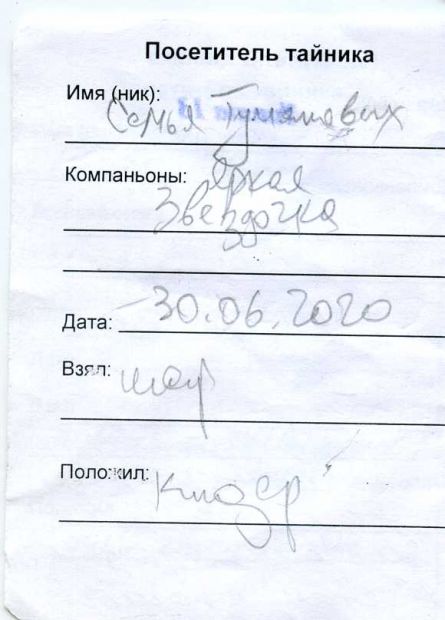 Посетитель тайника
Имя (ник):
Семья
Компаньоны: Яркая
Звездочка
Дата: 30.06.2020
Взял: шар
Положил: киндер